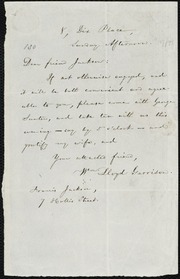 8, Dix Place,
Sunday Afternoon.
Dear friend Jackson:
If not otherwise engaged, and
it will be both convenient and agree-
able to you, please come with George
and take tea with us this
evening — say by 5 o'clock — and
gratify my wife, and
Your attached friend,
Wm. Lloyd Garrison.
Francis Jackson,
7 Hollis Street.